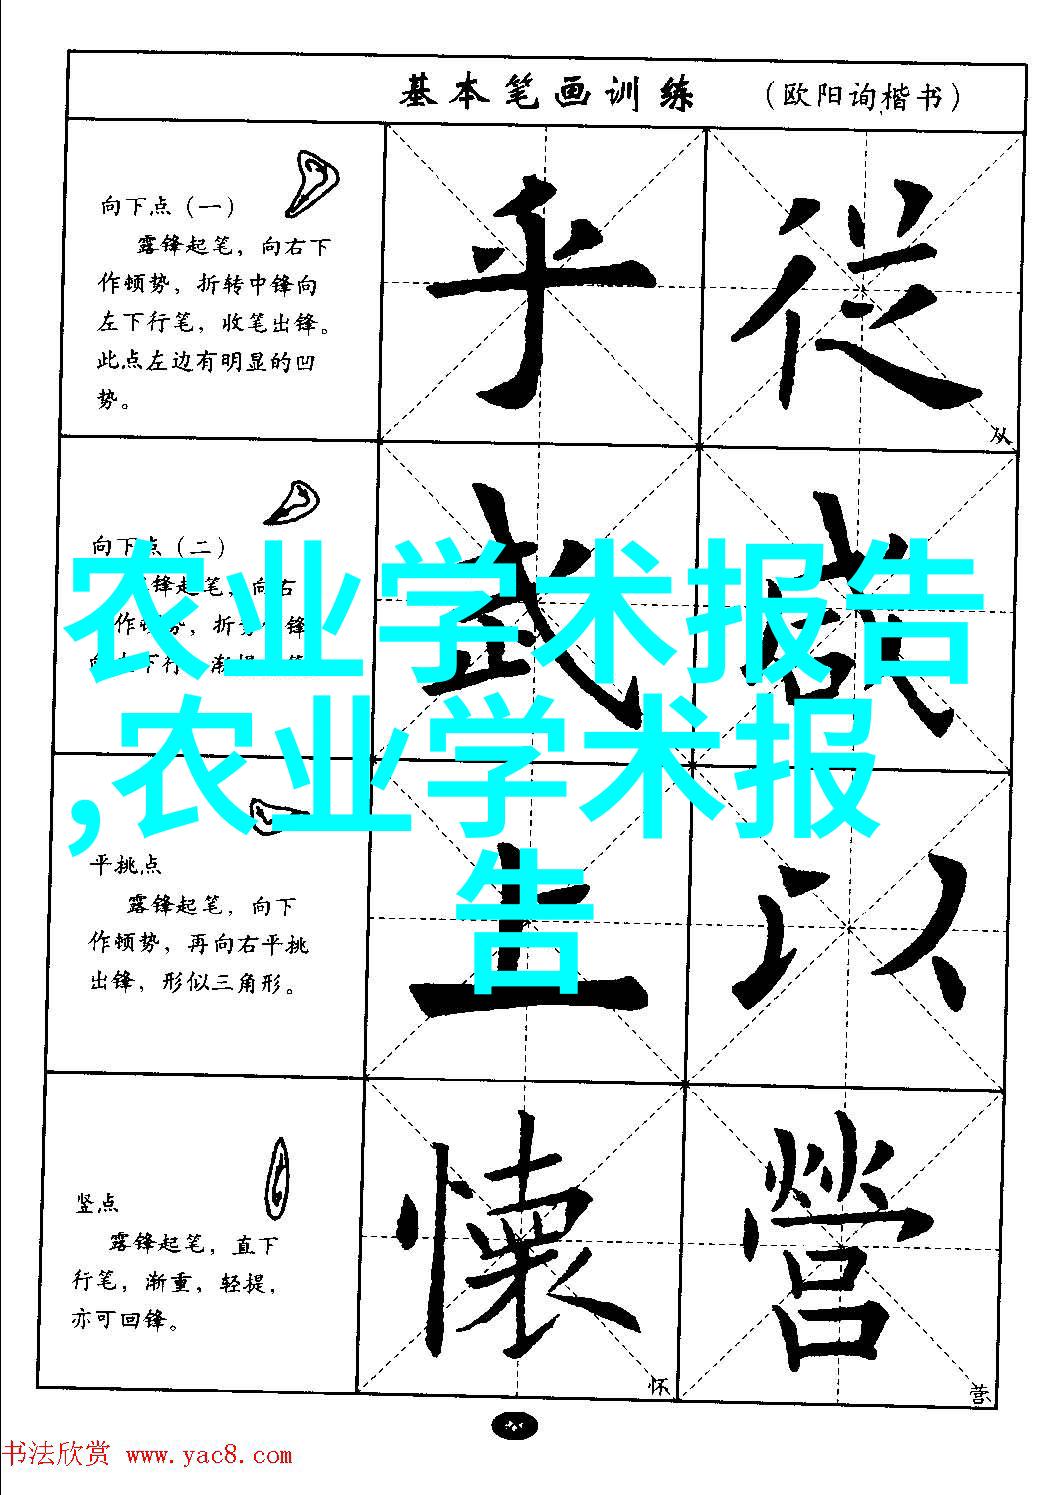 基本笔画训练 （欧阳询楷书）
向下点（一）
露锋起笔，向右下
作顿势，折转中锋向
左下行笔，收笔出锋。
此点左边有明显的凹
势。
乎 從
从
向下点（二）
锋起笔，向右
作顿势，折
下行
武 哉
农业学术报告
,农业学术报
告
平挑点
露锋起笔，向下
作顿势，再向右平挑
出锋，形似三角形。
上 以
竖点
露锋起笔，直下
行笔，渐重，轻提，
亦可回锋。
懷 營
怀 营
书法欣赏 www.yac8.com